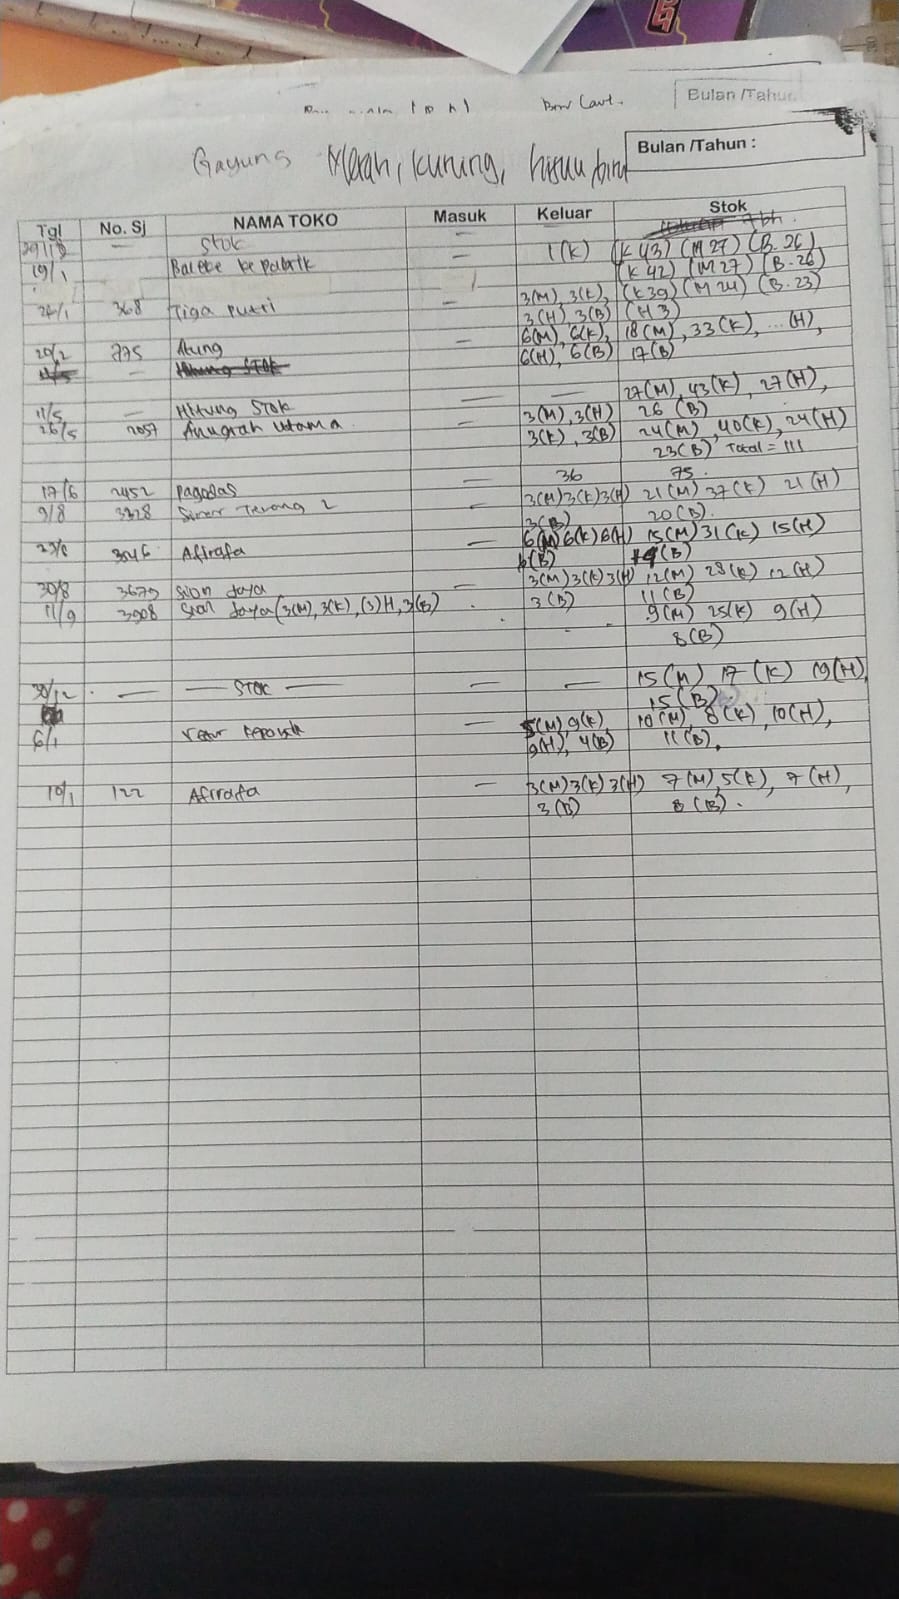 Bulan /Tahun
Bulan /Tahun :
Gayung Merah, kuning, hijau biru
Tgl No. Sj NAMA TOKO Masuk Keluar Stok
stok — (K 43) (M 27) (B. 26)
19/1 Balebe ke pabrik — 1 (K) (K 42) (M27) (B-26)
24/1 368 Tiga putri — 3(M), 3(K), (K39) (M 24) (B. 23)
3(H) 3(B) (H 3)
20/2 775 Atung — 6(M), 6(K), 18(M), 33(K), ...(H),
6(H), 6(B) 17(B)
11/5 — Hitung Stok — 27(M), 43(K), 27(H),
26 (B)
26/5 2057 Anugrah utama — 3(M), 3(H) 24(M), 40(K), 24(H)
3(K), 3(B) 23(B) Total = 111
36 75.
17/6 2452 pagodas — 3(M)3(K)3(H) 21(M) 37(K) 21(H)
9/8 3328 Sinar Terang 2 3(B) 20(B).
3046 Afirafa — 6(M)6(K)6(H) 15(M)31(K) 15(H)
6(B) (B)
30/8 3675 Sion Jaya — 3(M)3(K)3(H) 12(M) 28(K) 12(H)
3(B) 11(B)
11/9 3908 Sion Jaya (3(M), 3(K), (3)H, 3(B) 9(M) 25(K) 9(H)
8(B)
30/12 — — STOK — — — 15(M) 17(K) 19(H),
15(B)
6/1 retur — 5(M) 9(K) 10(M), 8(K), 10(H),
9(H), 4(B) 11(B),
10/1 122 Afirafa — 3(M)3(K)3(H) 7(M), 5(K), 7(H),
3(B) 8(B).